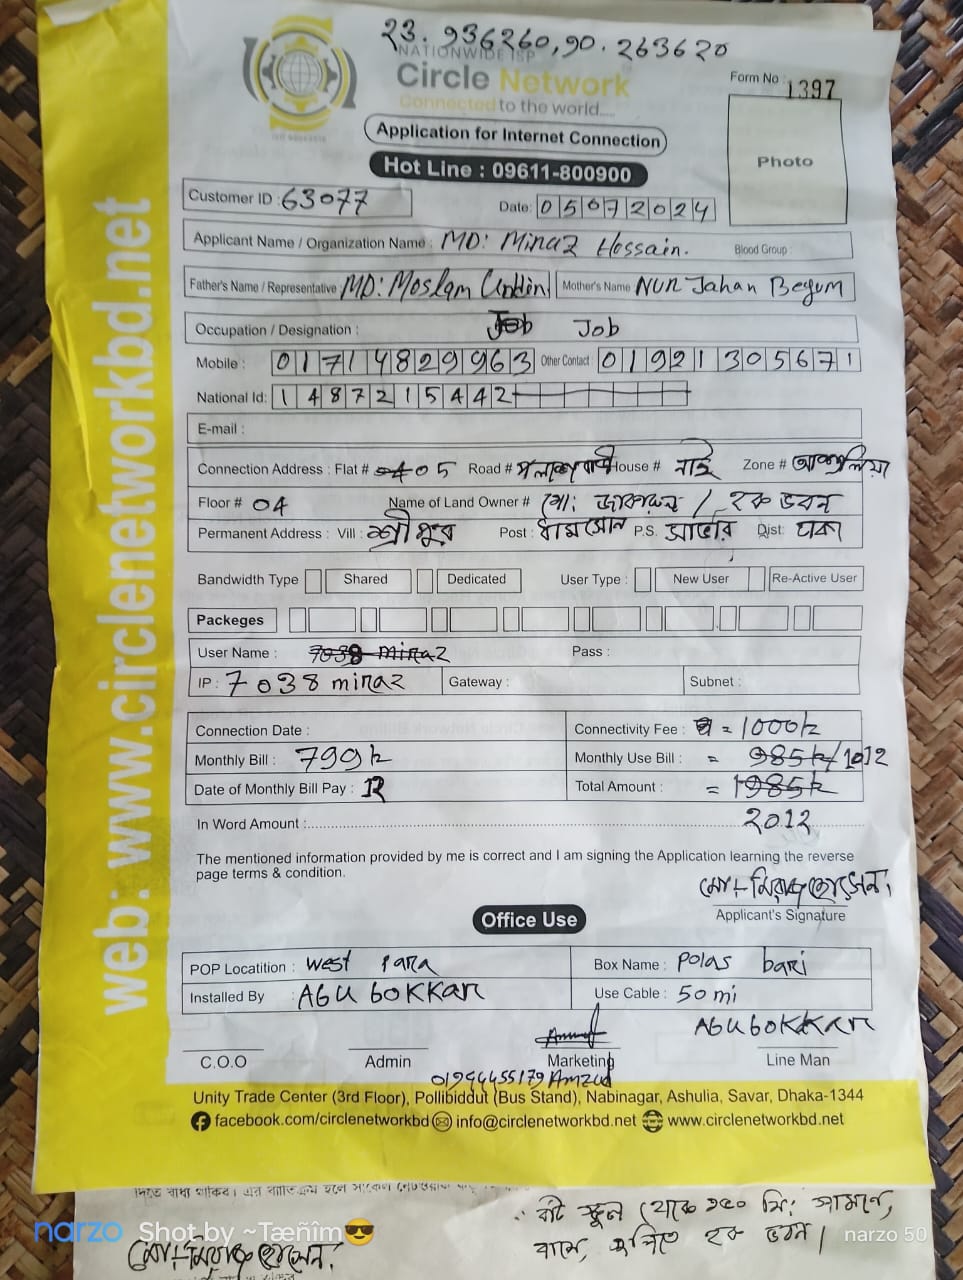 23.936260,90.263620
NATIONWIDE ISP
Circle Network
Connected to the world....
Form No : 1397
Application for Internet Connection
Photo
Hot Line : 09611-800900
Customer ID : 63077
Date: 05072024
Applicant Name / Organization Name : MD: Minaz Hossain. Blood Group :
Father's Name / Representative MD: Moslam Uddin Mother's Name NUR Jahan Begum
Occupation / Designation : Job Job
Mobile : 01714829963 Other Contact 01921305671
National Id: 1487215442
E-mail :
Connection Address : Flat # 05 Road # পলাশবাড়ী House # নাই Zone # আশুলিয়া
Floor # 04 Name of Land Owner # মো: / হক ভবন
Permanent Address : Vill : শ্রীপুর Post : ধামসোন P.S. সাভার Dist: ঢাকা
Bandwidth Type Shared Dedicated User Type : New User Re-Active User
Packeges
User Name : 7038 minaz Pass :
IP : 7038 minaz Gateway : Subnet :
Connection Date : Connectivity Fee : = 1000k
Monthly Bill : 799k Monthly Use Bill : = 985k/1012
Date of Monthly Bill Pay : 12 Total Amount : = 1985k
In Word Amount :.......... 2012
The mentioned information provided by me is correct and I am signing the Application learning the reverse
page terms & condition.
মো: মিরাজ হোসেন,
Applicant's Signature
Office Use
POP Locatition : west para Box Name : Polas bari
Installed By : AbU bOKKAr Use Cable : 50 mi
AbU bOKKAr
C.O.O Admin Marketing Line Man
01944455179 Amzad
Unity Trade Center (3rd Floor), Pollibiddut (Bus Stand), Nabinagar, Ashulia, Savar, Dhaka-1344
facebook.com/circlenetworkbd info@circlenetworkbd.net www.circlenetworkbd.net
web: www.circlenetworkbd.net
স্কুল থেকে ১৫০ মি: সামনে,
বামে, হক ভবন।
মো: মিরাজ হোসেন.
narzo Shot by ~Tæñîm😎 narzo 50